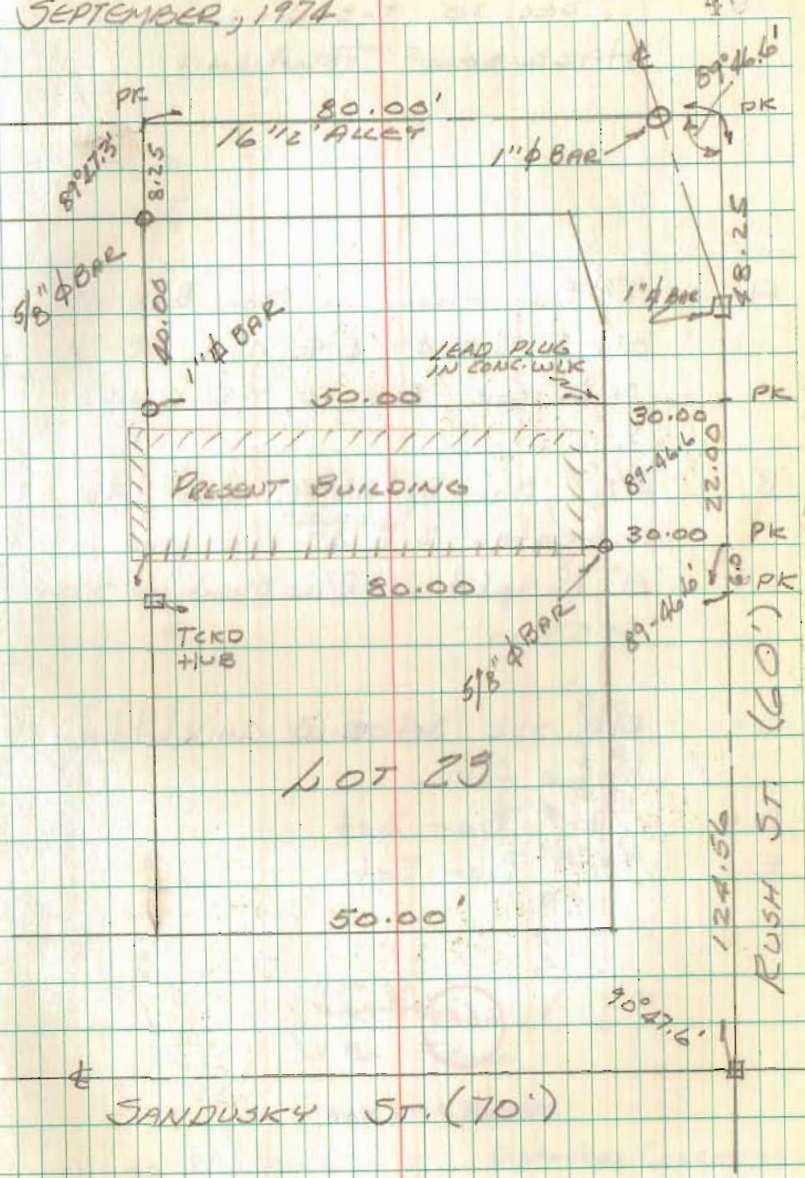 SEPTEMBER, 1974
PK
80.00'
16 1/2' ALLEY
℄
89°46.6'
PK
1"ϕ BAR
89°27.3'
8.25
5/8" ϕ BAR
40.00
1" ϕ BAR
48.25
1"ϕ BAR
LEAD PLUG
IN CONC. WLK
50.00
30.00
PK
89-46.6
22.00
PRESENT BUILDING
30.00
PK
80.00
6.0
PK
89-46.6'
TCKD
HUB
5/8" ϕ BAR
LOT 23
124.56
RUSH ST. (60')
50.00'
90°47.6'
℄
SANDUSKY ST. (70')